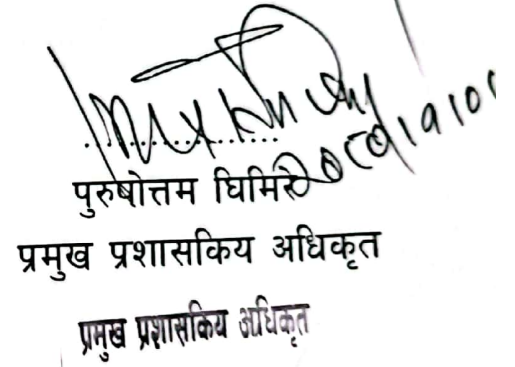 पुरुषोत्तम घिमिरे
प्रमुख प्रशासकिय अधिकृत
प्रमुख प्रशासकिय अधिकृत